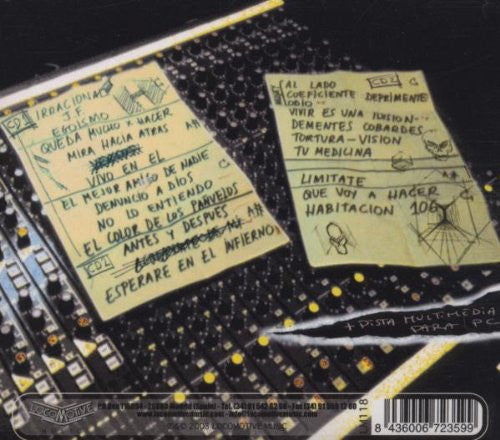 CD1
J.F.
EGOISMO
QUEDA MUCHO X HACER
MIRA HACIA ATRAS
VIVO EN EL
EL MEJOR AMIGO DE NADIE
DENUNCIO A DIOS
NO LO ENTIENDO
EL COLOR DE LOS PAÑUELOS
ANTES Y DESPUES
CD2
ESPERARE EN EL INFIERNO
AL LADO
CD2
COEFICIENTE DEPRIMENTE
ODIO
VIVIR ES UNA ILUSION
DEMENTES COBARDES
TORTURA-VISION
TU MEDICINA
LIMITATE
QUE VOY A HACER
HABITACION 106
+ PISTA MULTIMEDIA
PARA PC
LOCOMOTIVE
Madrid (Spain)
www.locomotivemusic.com - info@locomotivemusic.com
2003 LOCOMOTIVE MUSIC
8 436006 723599